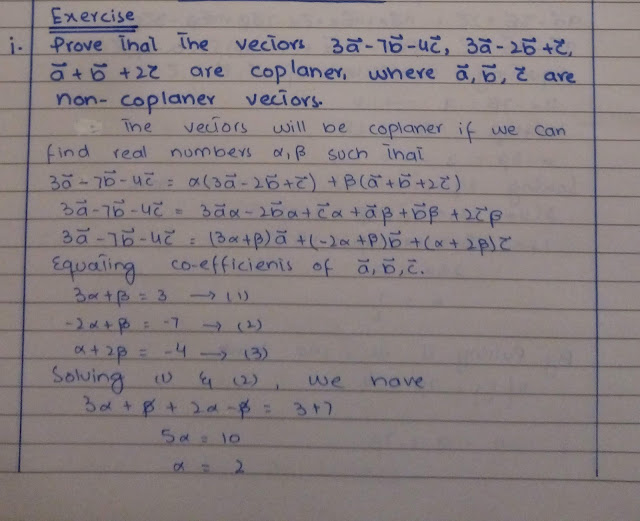 Exercise
i. Prove that the vectors 3a⃗-7b⃗-4c⃗, 3a⃗-2b⃗+c⃗,
a⃗+b⃗+2c⃗ are coplaner, where a⃗, b⃗, c⃗ are
non-coplaner vectors.
The vectors will be coplaner if we can
find real numbers α, β such that
3a⃗-7b⃗-4c⃗ = α(3a⃗-2b⃗+c⃗) + β(a⃗+b⃗+2c⃗)
3a⃗-7b⃗-4c⃗ = 3a⃗α-2b⃗α+c⃗α+a⃗β+b⃗β+2c⃗β
3a⃗-7b⃗-4c⃗ = (3α+β)a⃗+(-2α+β)b⃗+(α+2β)c⃗
Equating co-efficients of a⃗, b⃗, c⃗.
3α+β = 3 → (1)
-2α+β = -7 → (2)
α+2β = -4 → (3)
Solving (1) & (2), we have
3α + β + 2α - β = 3+7
5α = 10
α = 2